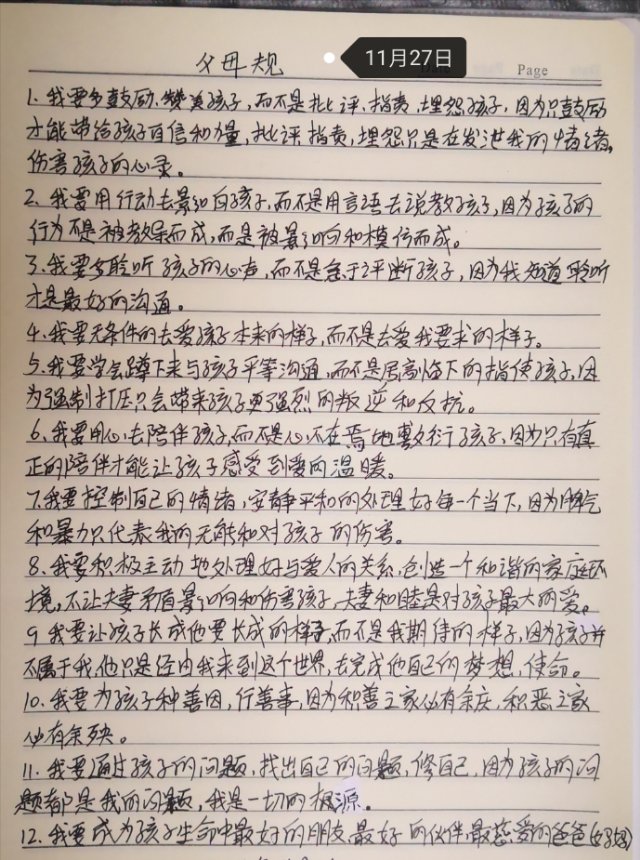 父母规
11月27日
Page
1. 我要多鼓励、赞美孩子，而不是批评、指责、埋怨孩子，因为只鼓励
才能带给孩子自信和力量，批评、指责，埋怨只是在发泄我的情绪，
伤害孩子的心灵。
2. 我要用行动去影响孩子，而不是用言语去说教孩子，因为孩子的
行为不是被教导而成，而是被影响和模仿而成。
3. 我要多聆听孩子的心声，而不是急于评断孩子，因为我知道聆听
才是最好的沟通。
4. 我要无条件的去爱孩子本来的样子，而不是去爱我要求的样子。
5. 我要学会蹲下来与孩子平等沟通，而不是居高临下的指使孩子，因
为强制打压只会带来孩子更强烈的叛逆和反抗。
6. 我要用心去陪伴孩子，而不是心不在焉地敷衍孩子，因为只有真
正的陪伴才能让孩子感受到爱的温暖。
7. 我要控制自己的情绪，安静平和的处理好每一个当下，因为脾气
和暴力只代表我的无能和对孩子的伤害。
8. 我要积极主动地处理好与爱人的关系，创造一个和谐的家庭环
境，不让夫妻矛盾影响和伤害孩子，夫妻和睦是对孩子最大的爱。
9 我要让孩子长成他要长成的样子，而不是我期待的样子，因为孩子并
不属于我，他只是经由我来到这个世界，去完成他自己的梦想，使命。
10. 我要为孩子种善因，行善事，因为积善之家必有余庆，积恶之家
必有余殃。
11. 我要通过孩子的问题，找出自己的问题，修自己，因为孩子的问
题都是我的问题，我是一切的根源。
12. 我要成为孩子生命中最好的朋友，最好的伙伴，最慈爱的爸爸(妈妈)